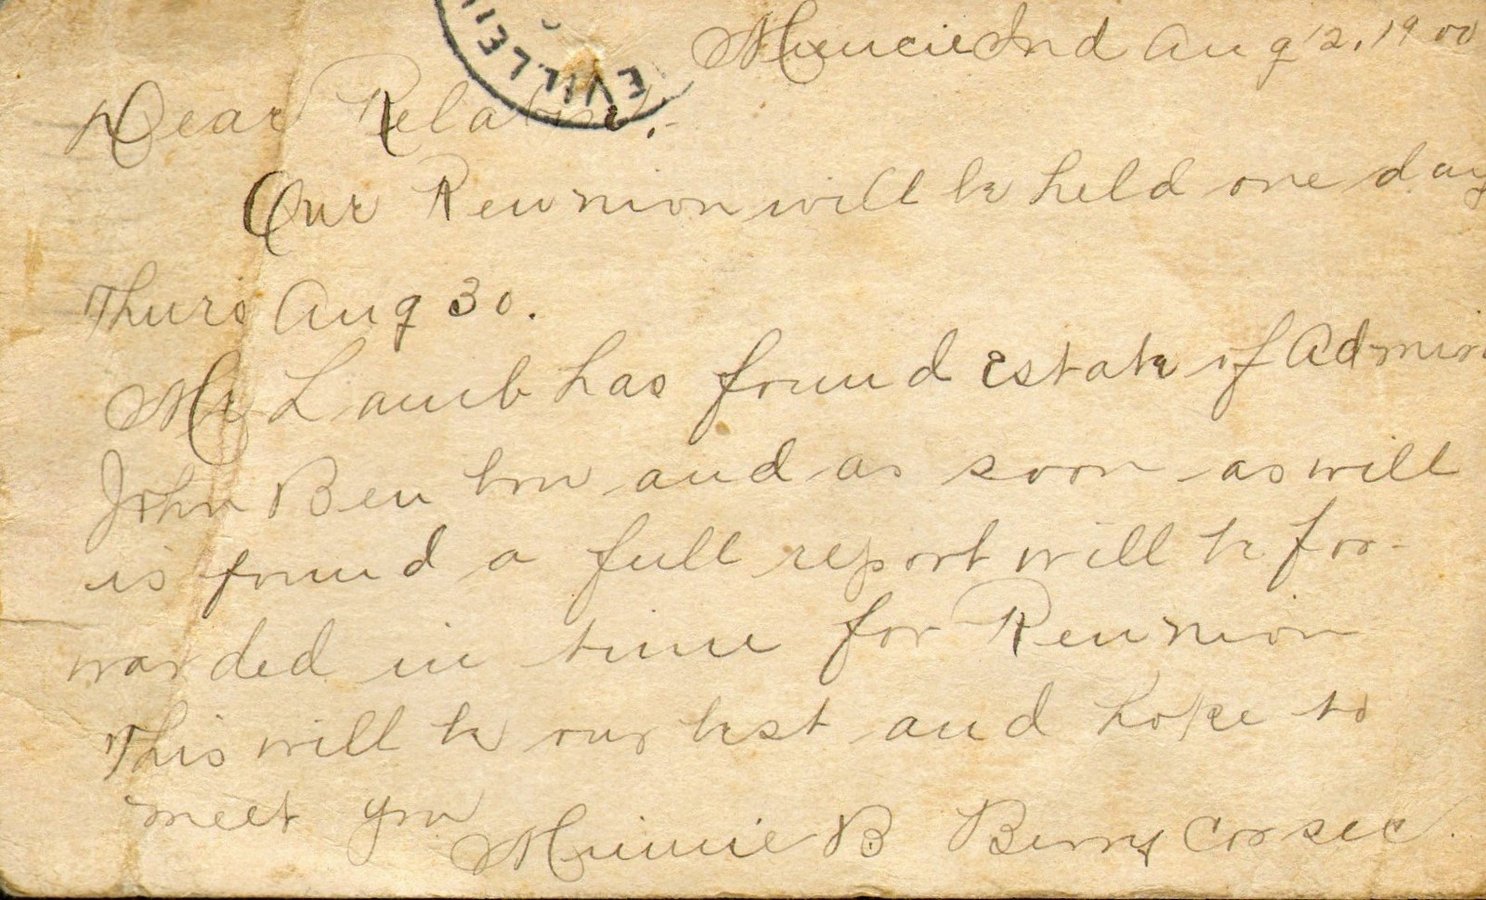 Muncie Ind Aug 12, 1900
EVILLE
Dear Relative:-
Our Reunion will be held one day
Thurs Aug 30.
Mr Lamb has found estate of Admir
John Benbow and as soon as will
is found a full report will be for-
warded in time for Reunion
This will be our best and hope to
meet you
Minnie B Berry Cor sec.